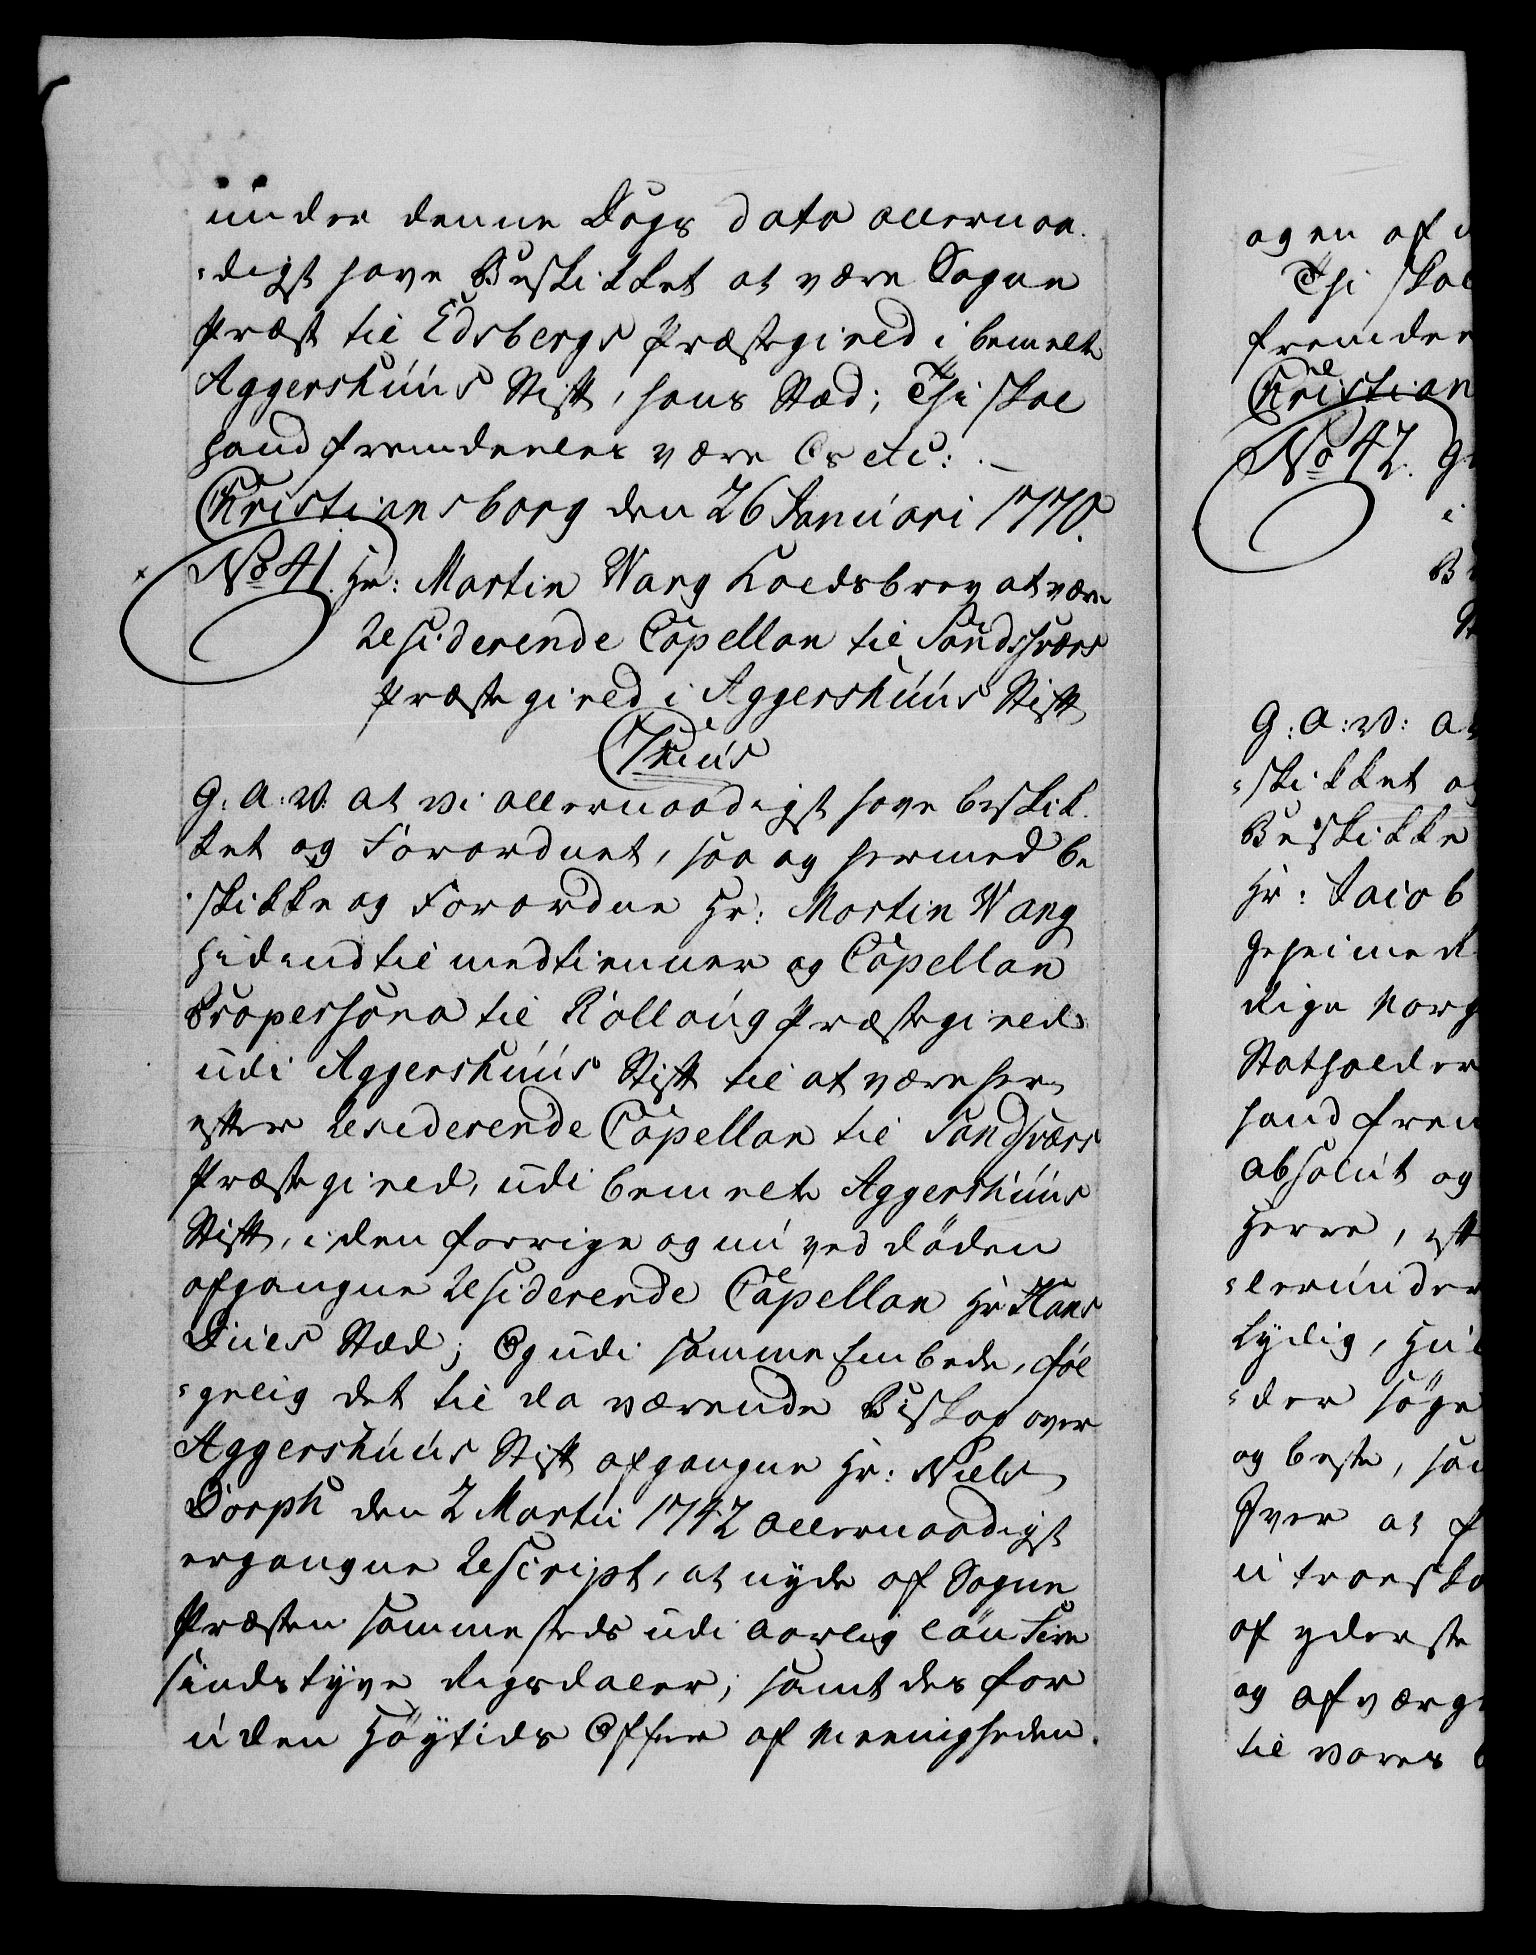 under denne Dags dato allernaa-
-digst have Beskikket at være Sogne
Præst til Edsbergs Præstegield i bemelte
Aggershuus Stift, hans Stæd; Thi skal
hand fremdeeles være Os etc: . –
Christiansborg den 26 Januari 1770.
No 41. Hr: Martin Wang Kaldsbrev at være
Residerende Capellan til Sandsværs
Præstegield i Aggershuus Stift
Chr: 7de
G. A. W. at vi allernaadigst have beskik-
ket og Forordnet, saa og hermed be
-skikke og Forordne Hr: Martin Wang
hidindtil medtienner og Capellan
Propersona til Rollaug Præstegield
udi Aggershuus Stift til at være her-
efter Residerende Capellan til Sandsværs
Præstegield, udi bemelte Aggershuus
Stift, i den forrige og nu ved döden
afgangne Residerende Capellan Hr Hans
Dues Stæd; Og udi samme Embede, föl
-gelig det til da værende Biskop over
Aggershuus Stift afgangne Hr: Niels
Dorph den 2 Martii 1742 allernaadigst
ergangne Rescript, at nyde af Sogne
Præsten sammesteds udi aarlig lön Fire
sindstyve Rigsdaler; samt des for
uden Höytids Offer af Meenigheden.
og en af
Thi skal
fremdee
Christian
No 42. G
i
B
G: A: W: a
-skikket o
Beskikke
Hr: Jacob
Geheime R
Rige Norg
Statholder
hand frem
absolut og
Herre, eft
-lerunder
Lydig, Hu
-der söge
og beste, sa
Over at f
u transka
af yderste
og afværge
til vores